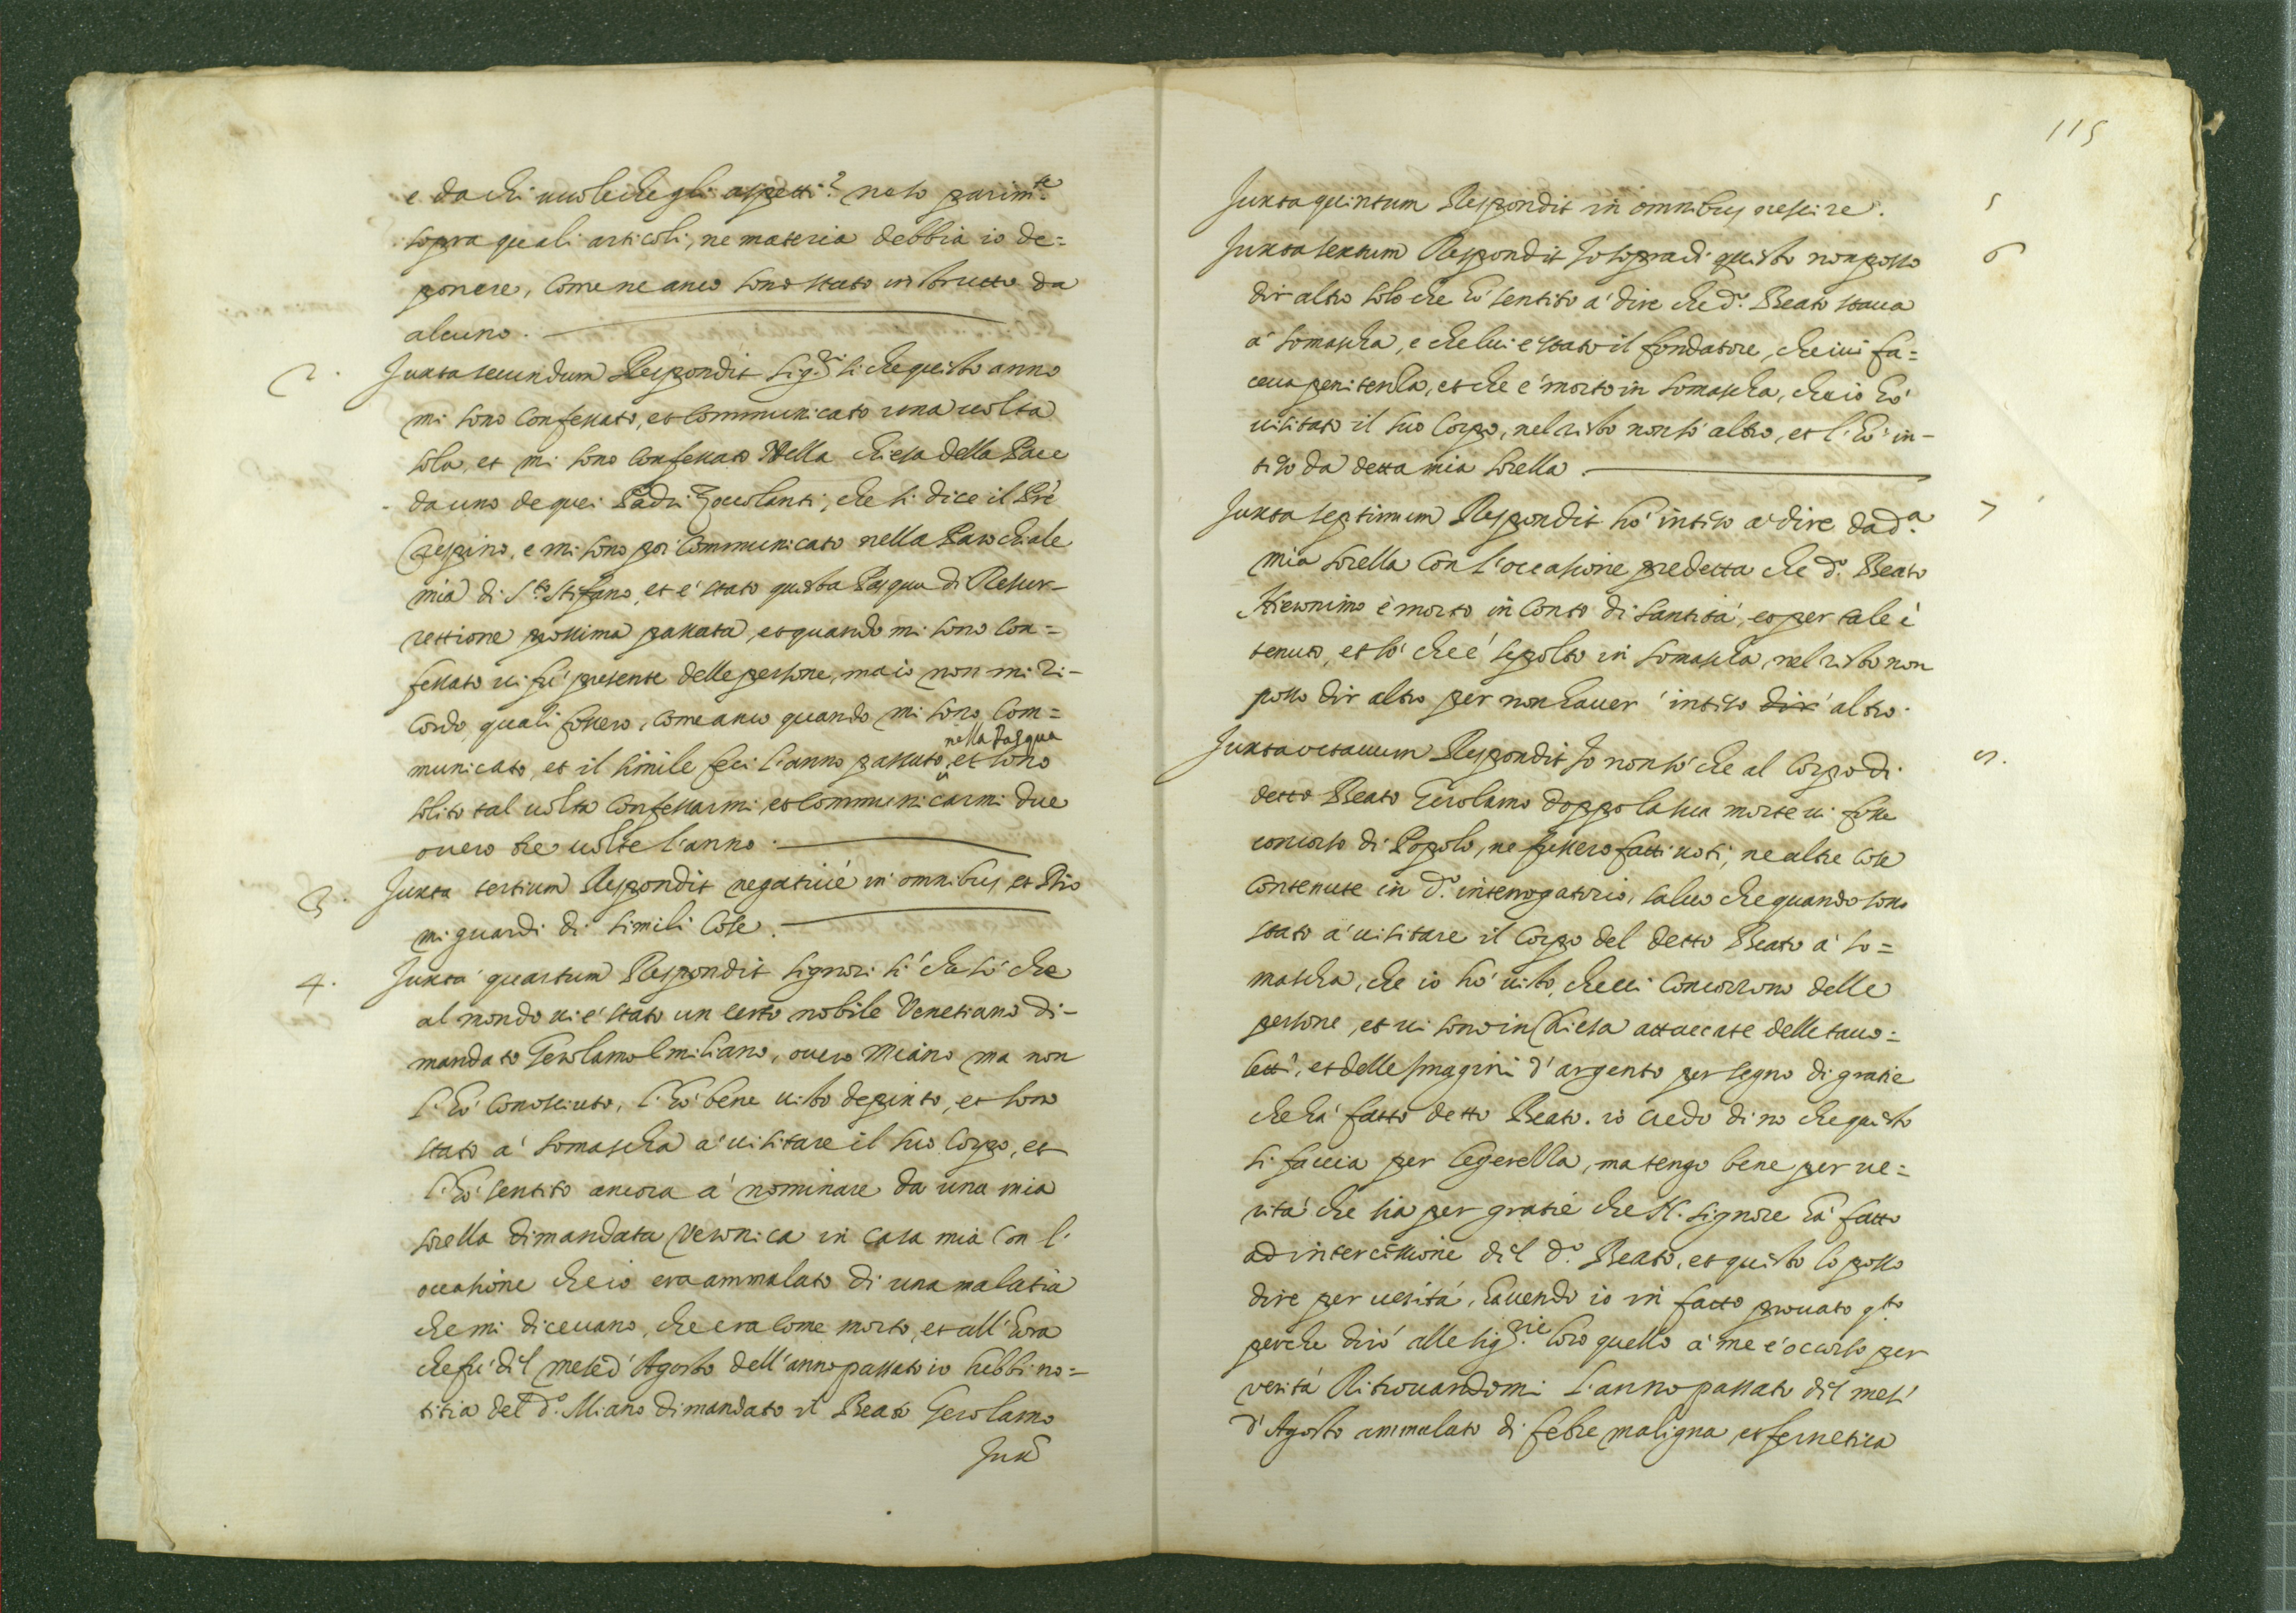 e da chi vuole che gli aspetti? ne so parim.te
sopra quali articoli, ne materia debbia io de=
ponere, come ne anco sono stato instrutto da
alcuno.
2. Juxta secundum Respondit sig.ri si che questo anno
mi sono confessato, et communicato una volta
sola, et mi sono confessato Nella chiesa della Pace
da uno de quei Padri Zoccolanti, che si dice il Pre
Crespino, e mi sono poi communicato nella Parochiale
mia di S.to Stefano, et è stato questa Pasqua di Resur-
rettione prossima passata, et quando mi sono con=
fessato vi fù presente delle persone, ma io non mi ri-
cordo quali fossero, come anco quando mi sono com=
nella Pasqua
municato, et il simile feci l'anno passato, et sono
solito tal volta confessarmi, et communicarmi due
overo tre volte l'anno.
3. Juxta tertium Respondit negativè in omnibus, et Dio
mi guardi di simili cose.
4. Juxta quartum Respondit signori si che sò che
al mondo vi è stato un certo nobile Venetiano di-
mandato Gerolamo Emiliano, overo Miano ma non
l'hò conosciuto, l'hò bene visto depinto, et sono
stato à Somascha à visitare il suo corpo, et
l'hò sentito ancora à nominare da una mia
sorella dimandata Veronica in casa mia con l'
occasione che io era ammalato di una malatia
che mi dicevano, che era come morto, et all'hora
che fù dil mese d'Agosto dell'anno passato io hebbi no=
titia del d.o Miano dimandato il Beato Gerolamo
Jux
115
Juxta quintum Respondit in omnibus nescire. 5
Juxta sextum Respondit Io sopra di questo non posso 6
dir altro solo che hò sentito à dire che d.o Beato stava
à Somascha, e che lui è stato il fondatore, che ivi fa=
ceva penitenza, et che è morto in Somascha, che io hò
visitato il suo corpo, nel resto non sò altro, et l'hò in-
tiso da detta mia sorella.
Juxta septimum Respondit hò intiso à dire da d.a 7
mia sorella con l'occasione predetta che d.o Beato
Hieronimo è morto in conto di santità, et per tale è
tenuto, et sò che è sepolto in Somascha, nel resto non
posso dir altro per non haver intiso dir altro.
Juxta octavum Respondit Io non sò che al corpo di 8.
detto Beato Gerolamo doppo la sua morte vi fosse
concorso di Popolo, ne fussero fatti voti, ne altre cose
contenute in d.o interrogatorio, salvo che quando sono
stato à visitare il corpo del detto Beato à So=
mascha, che io hò visto, che vi concorrono delle
persone, et vi sono in Chiesa attaccate delle tavo=
lette, et delle Imagini d'argento per segno di gratie
che hà fatto detto Beato. io credo di no che questo
si faccia per legerezza, ma tengo bene per ve=
rità che sia per gratie che N. Signore hà fatto
ad intercessione dil d.o Beato, et questo lo posso
dire per verità, havendo io in fatto provato q.to
perche dirò alle sig.rie loro quello à me è occorso per
verità Ritrovandomi l'anno passato dil mese
d'Agosto ammalato di febre maligna, et fernetica